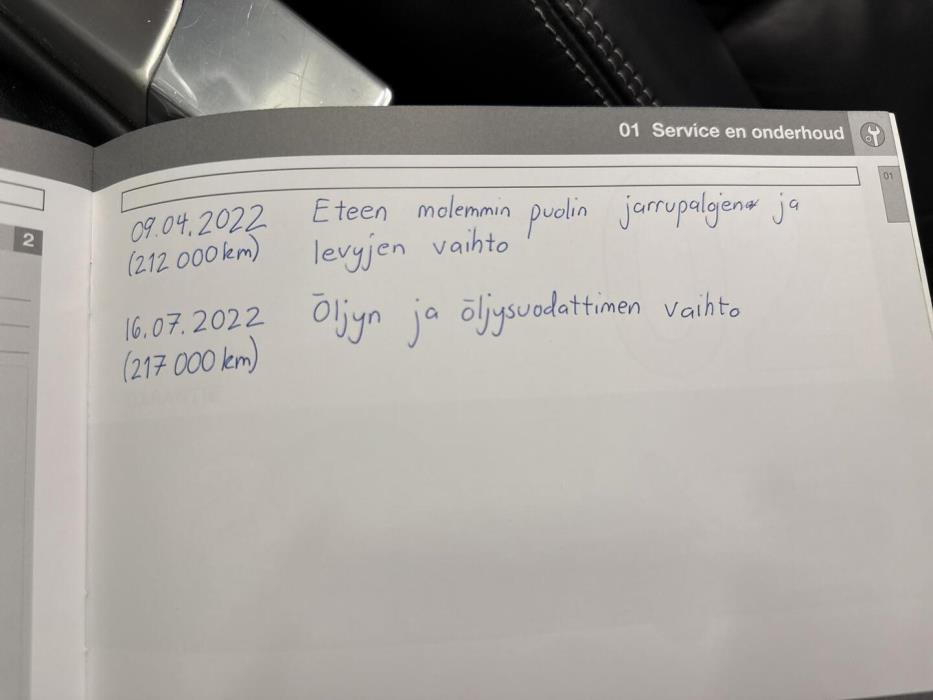 01 Service en onderhoud
01
2
09.04.2022 Eteen molemmin puolin jarrupalojen ja
(212 000 km) levyjen vaihto
16.07.2022 Öljyn ja öljysuodattimen vaihto
(217 000 km)